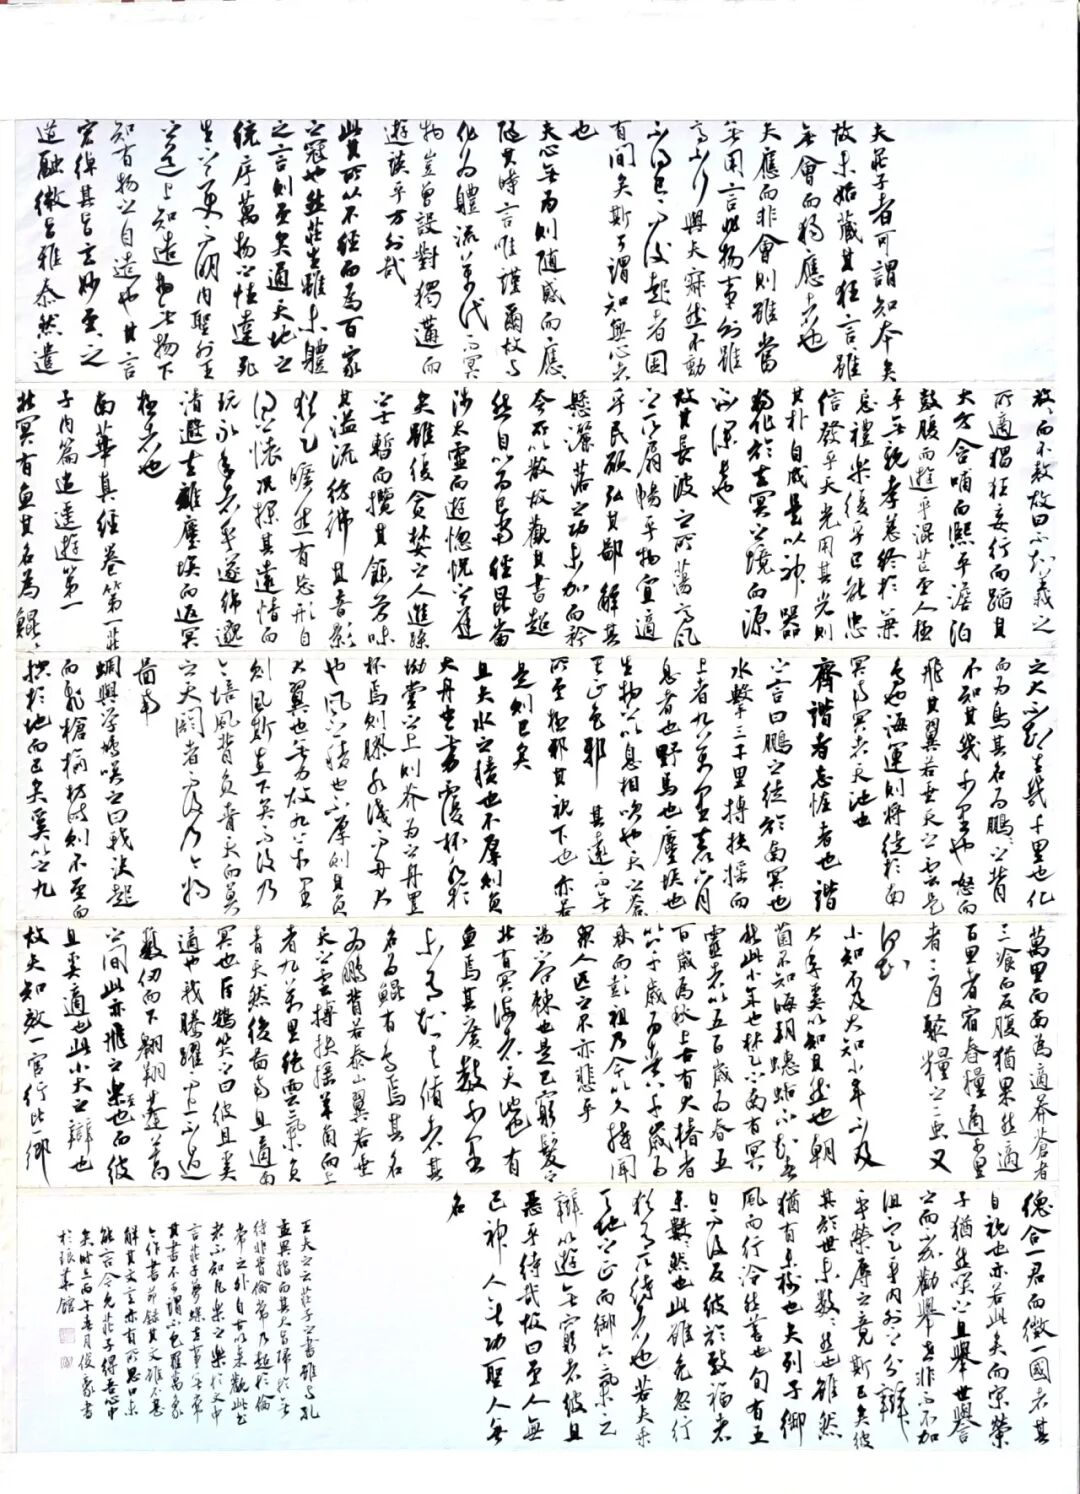 夫莊子者可謂知本矣
故未始藏其狂言言雖
無會而獨應者也
夫應而非會則雖當
無用言非物事則雖
高不行與夫寂然不動
不得已而後起者固
有間矣斯可謂知無心者
也
夫心無為則隨感而應
隨其時言唯謹爾故與
化為體流萬代而冥
物豈曾設對獨遘而
遊談乎方外哉
此其所以不經而為百家
之冠也然莊生雖未體
之言則至矣通天地之
統序萬物之性達死
生之變而明內聖外王
之道上知造物無物下
知有物之自造也其言
宏綽其旨玄妙至至之
道融微旨雅泰然遣
放放而不敖故曰不知義之
所適猖狂妄行而蹈其
大方含哺而熙乎澹泊
鼓腹而遊乎混茫至人極
乎無親孝慈終於兼
忘禮樂復乎已能忠
信發乎天光用其光則
其朴自成是以神器
獨化於玄冥之境而源
流深長也
故其長波之所蕩高風
之所扇暢乎物宜適
乎民願弘其鄙解其
懸灑落之功未加而矜
夸所以散故觀其書超
然自以為已當經崑崙
涉太虛而遊惚怳之庭
矣雖復貪婪之人進躁
之士暫而攬其餘芳味
其溢流彷彿其音影
猶足曠然有忘形自
得之懷況探其遠情而
玩永年者乎遂綿邈
清遐去離塵埃而返冥
極者也
南華真經卷第一莊
子內篇逍遙遊第一
北冥有魚其名為鯤鯤
之大不知其幾千里也化
而為鳥其名為鵬鵬之背
不知其幾千里也怒而
飛其翼若垂天之雲是
鳥也海運則將徙於南
冥南冥者天池也
齊諧者志怪者也諧
之言曰鵬之徙於南冥也
水擊三千里搏扶搖而
上者九萬里去以六月
息者也野馬也塵埃也
生物之以息相吹也天之蒼蒼
其正色邪其遠而無
所至極邪其視下也亦若
是則已矣
且夫水之積也不厚則負
大舟也無力覆杯水於
坳堂之上則芥為之舟置
杯焉則膠水淺而舟大
也風之積也不厚則其負
大翼也無力故九萬里
則風斯在下矣而後乃
今培風背負青天而莫
之夭閼者而後乃今將
圖南
蜩與學鳩笑之曰我決起
而飛槍榆枋時則不至而
控於地而已矣奚以之九
萬里而南為適莽蒼者
三飡而反腹猶果然適
百里者宿舂糧適千里
者三月聚糧之二蟲又
何知
小知不及大知小年不及
大年奚以知其然也朝
菌不知晦朔蟪蛄不知春
秋此小年也楚之南有冥
靈者以五百歲為春五
百歲為秋上古有大椿者
以八千歲為春八千歲為
秋而彭祖乃今以久特聞
眾人匹之不亦悲乎
湯之問棘也是已窮髮之
北有冥海者天池也有
魚焉其廣數千里
未有知其修者其
名為鯤有鳥焉其名
為鵬背若泰山翼若垂
天之雲搏扶搖羊角而上
者九萬里絕雲氣負
青天然後圖南且適南
冥也斥鴳笑之曰彼且奚
適也我騰躍而上不過
數仞而下翱翔蓬蒿
之間此亦飛之至也而彼
且奚適也此小大之辯也
故夫知效一官行比一鄉
德合一君而徵一國者其
自視也亦若此矣而宋榮
子猶然笑之且舉世譽
之而不加勸舉世非而不加
沮定乎內外之分辯
乎榮辱之竟斯已矣彼
其於世未數數然也雖然
猶有未樹也夫列子御
風而行泠然善也旬有五
日而後反彼於致福者
未數數然也此雖免乎行
猶有所待者也若夫乘
天地之正而御六氣之
辯以遊無窮者彼且
惡乎待哉故曰至人無
己神人無功聖人無
名
王夫之云莊子之書雖與孔
孟異指而其大旨歸於無
待非背倫常乃超於倫
常之外自古以來觀此書
者不知凡
言莊子夢蝶
其書不可謂不
今作書節錄其文雖不
解其文言亦有所思口未
能言今見莊子得吾心中
矣時在丙午春月俊豪書
於